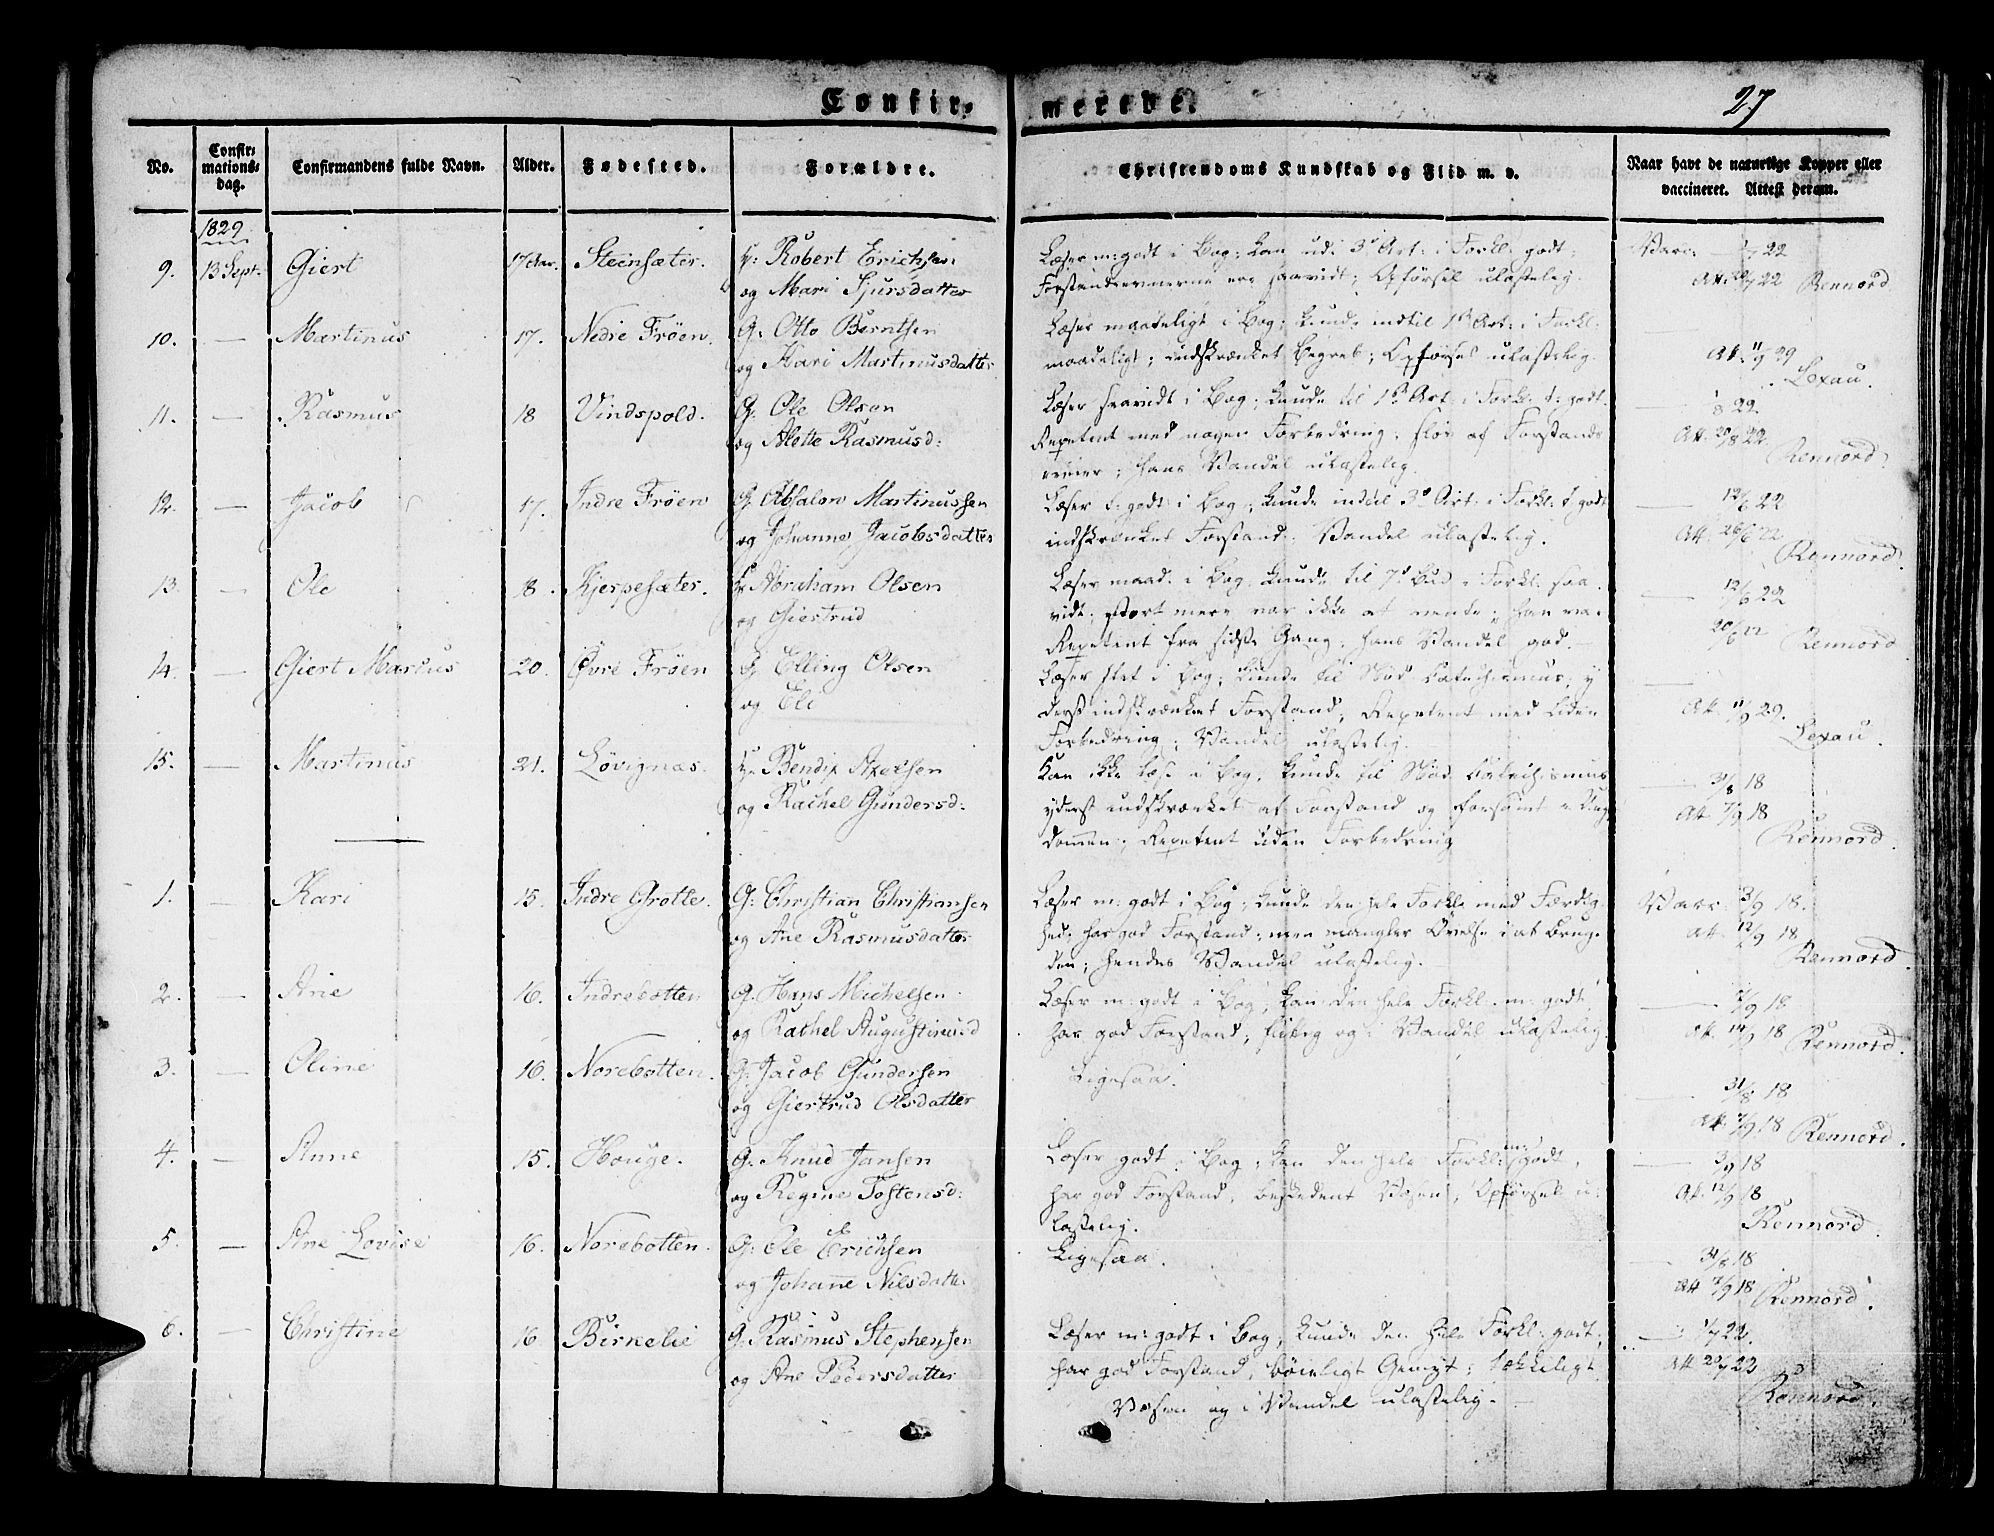 Confir- merede.
27
No.
Confir-
mations-
dag.
Confirmandens fulde Navn.
Alder.
Fødested.
Forældre.
Christendoms Kundskab og Flid m. v.
Naar havt de naturlige Kopper eller
vaccineret. Attest derom.
1829
9. 13 Sept. Giert 17 Aar. Steensæter. H: Robert Erichsen
og Mari Sjursdatter
Læser m: godt i Bog; kan ud: 3d Art: i Forkl: godt;
Forstandsevnerne ere saavidt; Opførsel ulastelig.
Vacc: 22
Att: 20/7 22 Rennord
10. — Martinus 17. Nedre Frøen. G: Otto Berntsen
og Kari Martinusdatter
Læser maadeligt i Bog; kunde indtil 1st Art: i Forkl:
maadeligt; indskrænket Begreb; Opførsel ulastelig.
—
Att: 11/9 29
Lexau.
11. — Rasmus 18 Vindspold. G. Ole Olsen
og Alette Rasmusd:
Læser saavidt i Bog; kunde til 1st Art: i Forkl: t: godt.
Repetent med nogen Forbedring; sløv af Forstands
evner; hans Vandel ulastelig.
— 8 22.
Att: 20/8 22.
Rennord.
12. — Jacob 17. Indre Frøen G: Absalon Martinussen
og Johanne Jacobsdatter
Læser t: godt i Bog; kunde indtil 3d Art: i Forkl: t: godt
indskrænket Forstand. Vandel ulastelig.
— 12/6 22
Att: 26/6 22
Rennord.
13. — Ole 18. Kjerpesæter. H: Abraham Olsen
og Giertrud
Læser maad: i Bog; kunde til 7d Bud i Forkl: saa
vidt; stort mere var ikke at vente; han va.
Repetent fra sidste Gang; hans Vandel god.
— 12/6 22
20/6 22
Rennord
14. — Giert Marcus 20. Øvre Frøen G. Elling Olsen
og Eli
Læser slet i Bog; kunde til Nød Catechismus; y
derst indskrænket Forstand; Repetent med liden
Forbedring; Vandel ulastelig.
—
Att. 11/9 29.
Lexau.
15. — Martinus 21. Løvignæs. H: Bendix Axelsen
og Rachel Gundersd:
Kan ikke læse i Bog; kunde til Nød Catechismus
yderst indskrænket af Forstand og forsømt i Ung
dommen; Repetent uden Forbedring
— 31/8 18
Att: 7/9 18
Rennord.
1. — Kari 15. Indre Grotle. G: Christian Christiansen
og Ane Rasmusdatter
Læser m: godt i Bog; kunde den hele Forkl: med Færdig
hed; har god Forstand; men mangler Øvelse i at brug.
den; hendes Vandel ulastelig.
Vacc: 3/9 18.
Att: 12/9 18.
Rennord.
2. — Ane 16. Indrebotten G. Hans Michelsen
og Rachel Augustinusd
Læser m: godt i Bog; kan den hele Forkl: m: godt
har god Forstand; flittig og i Vandel ulastelig.
— 7/9 18
Att: 14/9 18
Rennord.
3. — Oline 16. Norebotten. G: Jacob Gundersen
og Giertrud Olsdatter
Ligesaa.
— 31/8 18
Att: 7/9 18
Rennord.
4. — Anne 15. Houge. G: Knud Jansen
og Regine Tostensd:
Læser godt i Bog; kan den hele Forkl: m: godt,
har god Forstand; beskedent Væsen; Opførsel u-
lastelig.
— 3/9 18
Att: 12/9 18
Rennord.
5. — Ane Lovise 16. Norebotten. G: Ole Erichsen
og Johanne Nilsdatte.
Ligesaa.
— 31/8 18
Att 7/9 18
Rennord.
6. — Christine 16 Birkelie G: Rasmus Stephensen
og Ane Pedersdatter
Læser m: godt i Bog; kunde den hele Forkl: godt;
har god Forstand; bøieligt Gemyt; tækkeligt
Væsen og i Vandel ulastelig.
— 1/7 22.
Att 20/7 22
Rennord.